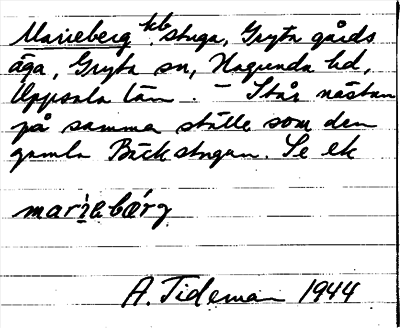 Marieberg kb stuga, Gryta gårds
äga, Gryta sn, Hagunda hd,
Uppsala län. – Står nästan
på samma ställe som den
gamla Bäckstugan. Se ek
marieberg
A. Tideman 1944